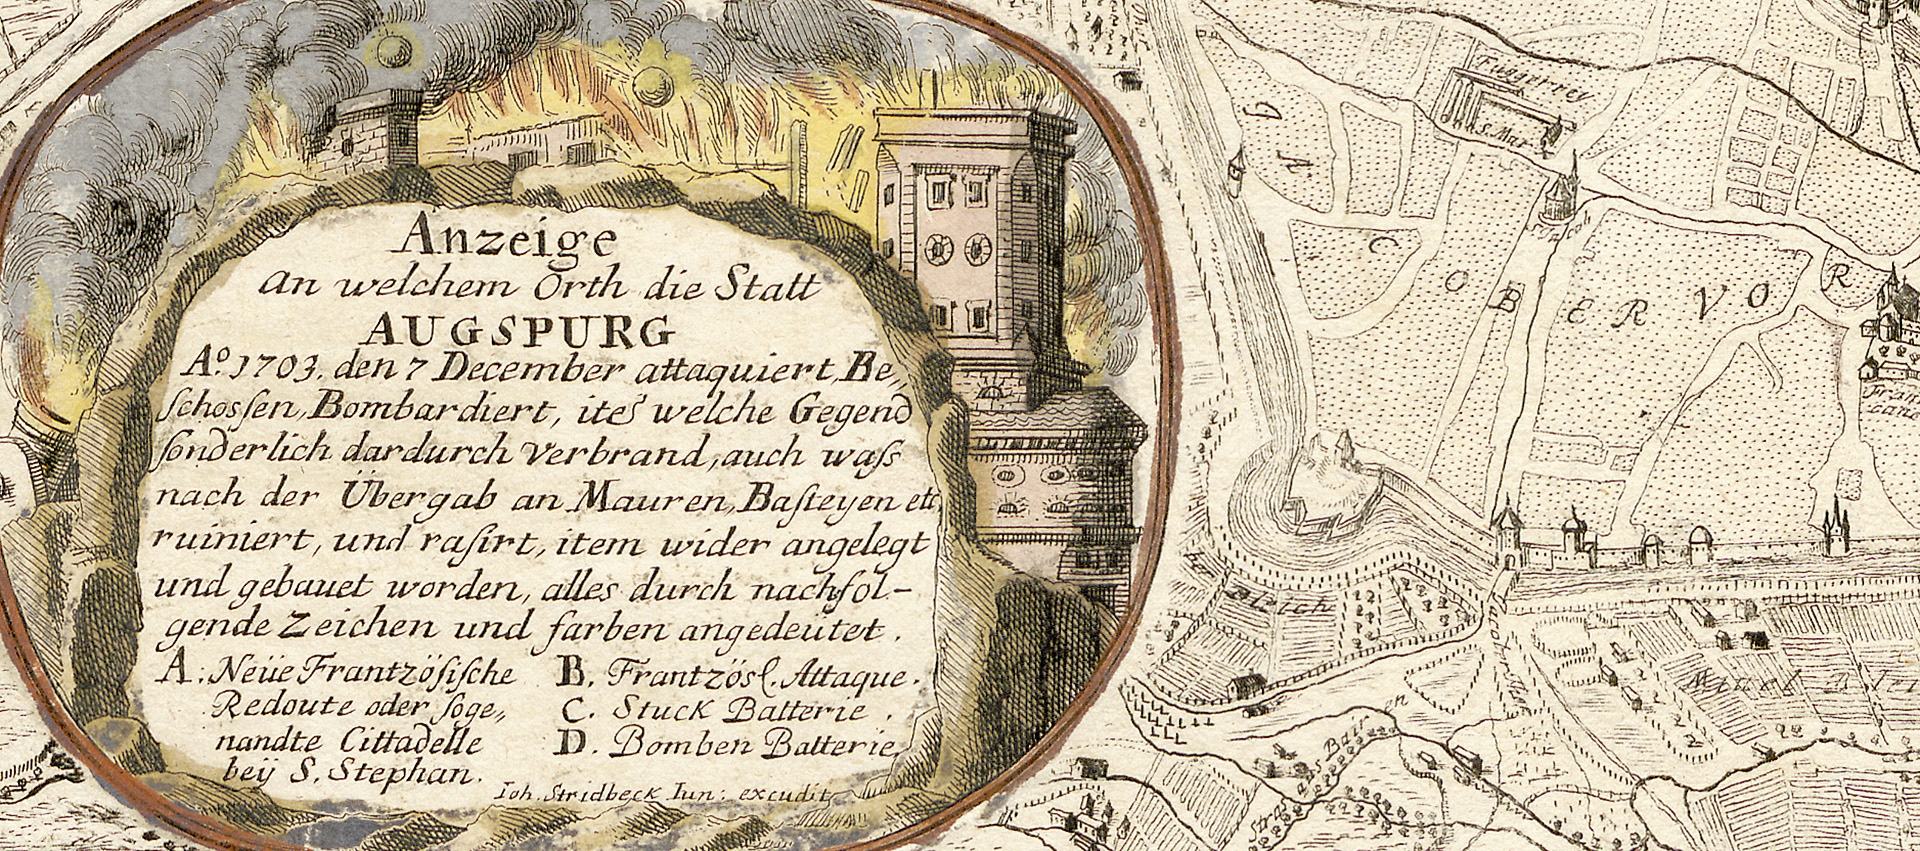 Anzeige
an welchem Orth die Statt
AUGSPURG
Aº. 1703. den 7 December attaquiert, Be„
schossen, Bombardiert, ite͂ welche Gegend
sonderlich dardurch verbrand, auch waſs
nach der Übergab an Mauren, Basteyen etc
ruiniert, und rasirt, item wider angelegt
und gebauet worden, alles durch nachfol-
gende Zeichen und farben angedeütet.
A. Neüe Frantzösische
Redoute oder soge„
nandte Cittadelle
beÿ S. Stephan.
B. Frantzösl. Attaque.
C. Stuck Batterie.
D. Bomben Batterie.
Ioh. Stridbeck Iun: excudit
S. Mar
OBER VOR
Fran
cane
Bleich